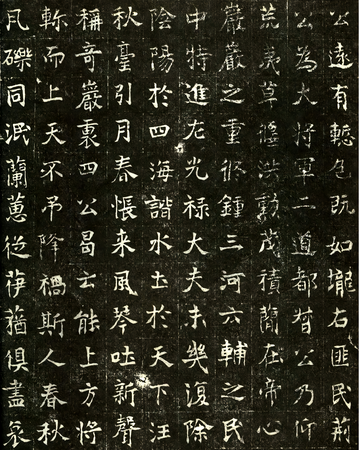 公遠有慙色既如壠右匪民荊
公為大將軍二道都督公乃仰
荒夷草洪勳茂積簡在帝心
巖巖之重俯鍾三河六輔之民
中特進左光禄大夫未幾復除
陰陽於四海諧水土於天下汪
秋臺引月春帳来風琴吐新聲
稱奇巖裏四公曷云能上方將
而上天不弔降禍斯人春秋
礫同泯蘭蕙從蕕俱盡哀